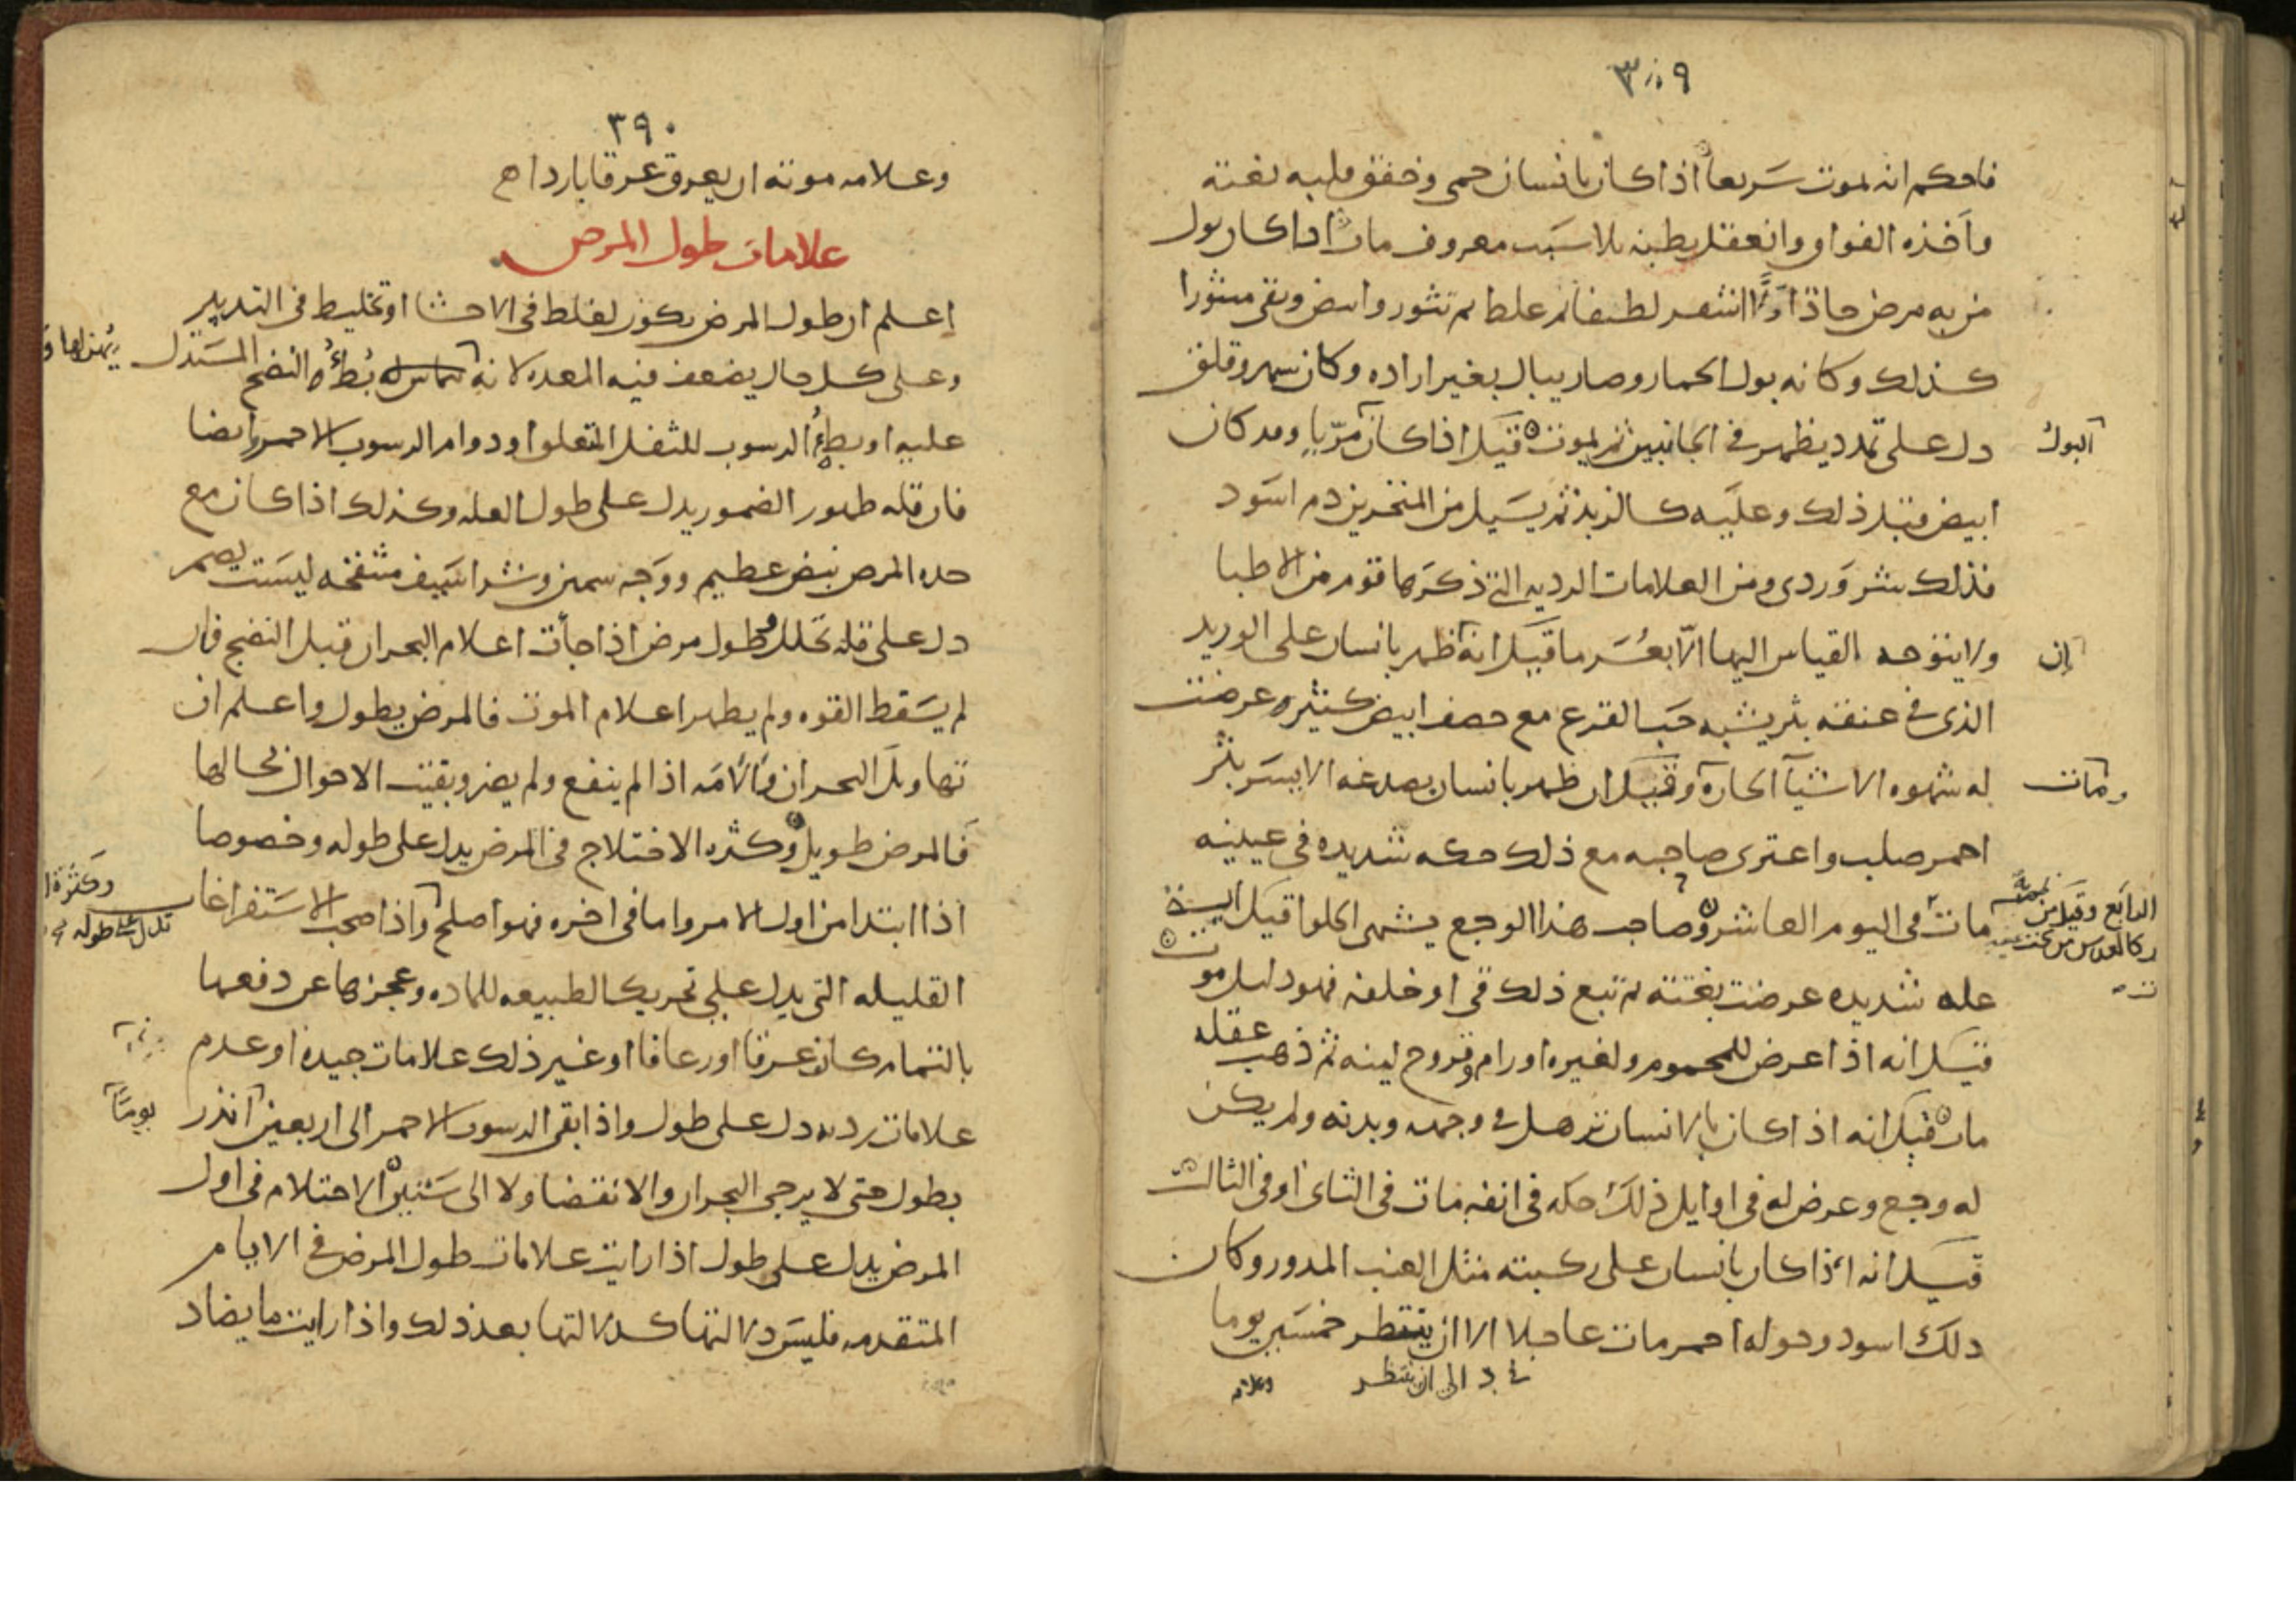 ٣٨٩
فاحكم انه يموت سريعا اذا كان بانسان حمى وخفق قلبه بغتة
واخذه الفواق وانعقل بطنه بلا سبب معروف مات اذا كان بول
من به مرض حاد اولا اشقر لطيفا ثم غلظ ثم تثور وابيض وبقى متثورا
كذلك وكانه بول الحمار وصار يبال بغير اراده وكان سهر وقلق
دل على تمدد يظهر فى الجانبين ثم يموت قيل اذا كان مريا وقد كان
البول
ابيض قبل ذلك وعليه كالزبد ثم يسيل من المنخرين دم اسود
فذلك شر وردى ومن العلامات الرديه التى ذكرها قوم من الاطبا
ولا يتوجه القياس اليها الا بعسر ما قيل انه ظهر بانسان على الوريد
إن
الذى فى عنقه بثر يشبه حب القرع مع حصف ابيض كثيره عرضت
له شهوه الاشيا الحاره وقيل ان ظهر بانسان بصدغه الايسر بثر
ومات
احمر صلب واعترى صاحبه مع ذلك حكه شديده فى عينيه
مات فى اليوم العاشر وصاحب هذا الوجع يشهى الحلوا قيل اية
الرابع وقيل من
عله شديده عرضت بغتة ثم تبع ذلك قى او خلفه فهو دليل موت
قيل انه اذا عرض للمحموم ولغيره اورام وقروح لينه ثم ذهب عقله
مات قيل انه اذا كان بالانسان ترهل فى وجهه وبدنه ولم يكن
له وجع وعرض له فى اوايل ذلك حكه فى انفه مات فى الثانى او فى الثالث
قيل انه اذا كان بانسان على ركبته مثل العنب المدور وكان
ذلك اسود وحوله احمر مات عاجلا الا ان ينتظر خمسين يوما
الى ان ينتظر
وعلامه
٣٩٠
وعلامه موته ان يعرق عرقا باردا
علامات طول المرض
إعلم ان طول المرض يكون لغلظ فى الاحشا او تخليط فى التدبير
وعلى كل حال يضعف فيه المعده لانه بطؤ النضج المستدل
عليه او بطؤ الرسوب للثفل المتعلق او دوام الرسوب الاحمر وايضا
فان قله ظهور الضمور يدل على طول العله وكذلك اذا كان مع
حده المرض نبض عظيم ووجه سمين وشراسيف منتفخه ليست يضمر
دل على قله تحلل وطول مرض اذا جأت اعلام البحران قبل النضج فان
لم يسقط القوه ولم يظهر اعلام الموت فالمرض يطول واعلم ان
تهاويل البحران والامه اذا لم ينفع ولم يضر وبقيت الاحوال بحالها
فالمرض طويل وكثره الاختلاج فى المرض يدل على طوله وخصوصا
اذا ابتدا من اول الامر واما فى اخره فهو اصلح واذا صحب الاستفراغات
وكثرة
تدل على طوله
القليله التى يدل على تحريك الطبيعه للماده وعجزها عن دفعها
بالتمام كان عرقا او رعافا او غير ذلك علامات جيده او عدم
علامات رديه دل على طول واذا بقى الرسوب الاحمر الى اربعين انذر
يوما
بطول حتى لا يرجى البحران والانقضا ولا الى ستين الاحتلام فى اول
المرض يدل على طول اذا رايت علامات طول المرض فى الايام
المتقدمه فليس دلالتها كدلالتها بعد ذلك واذا رايت ما يضاد